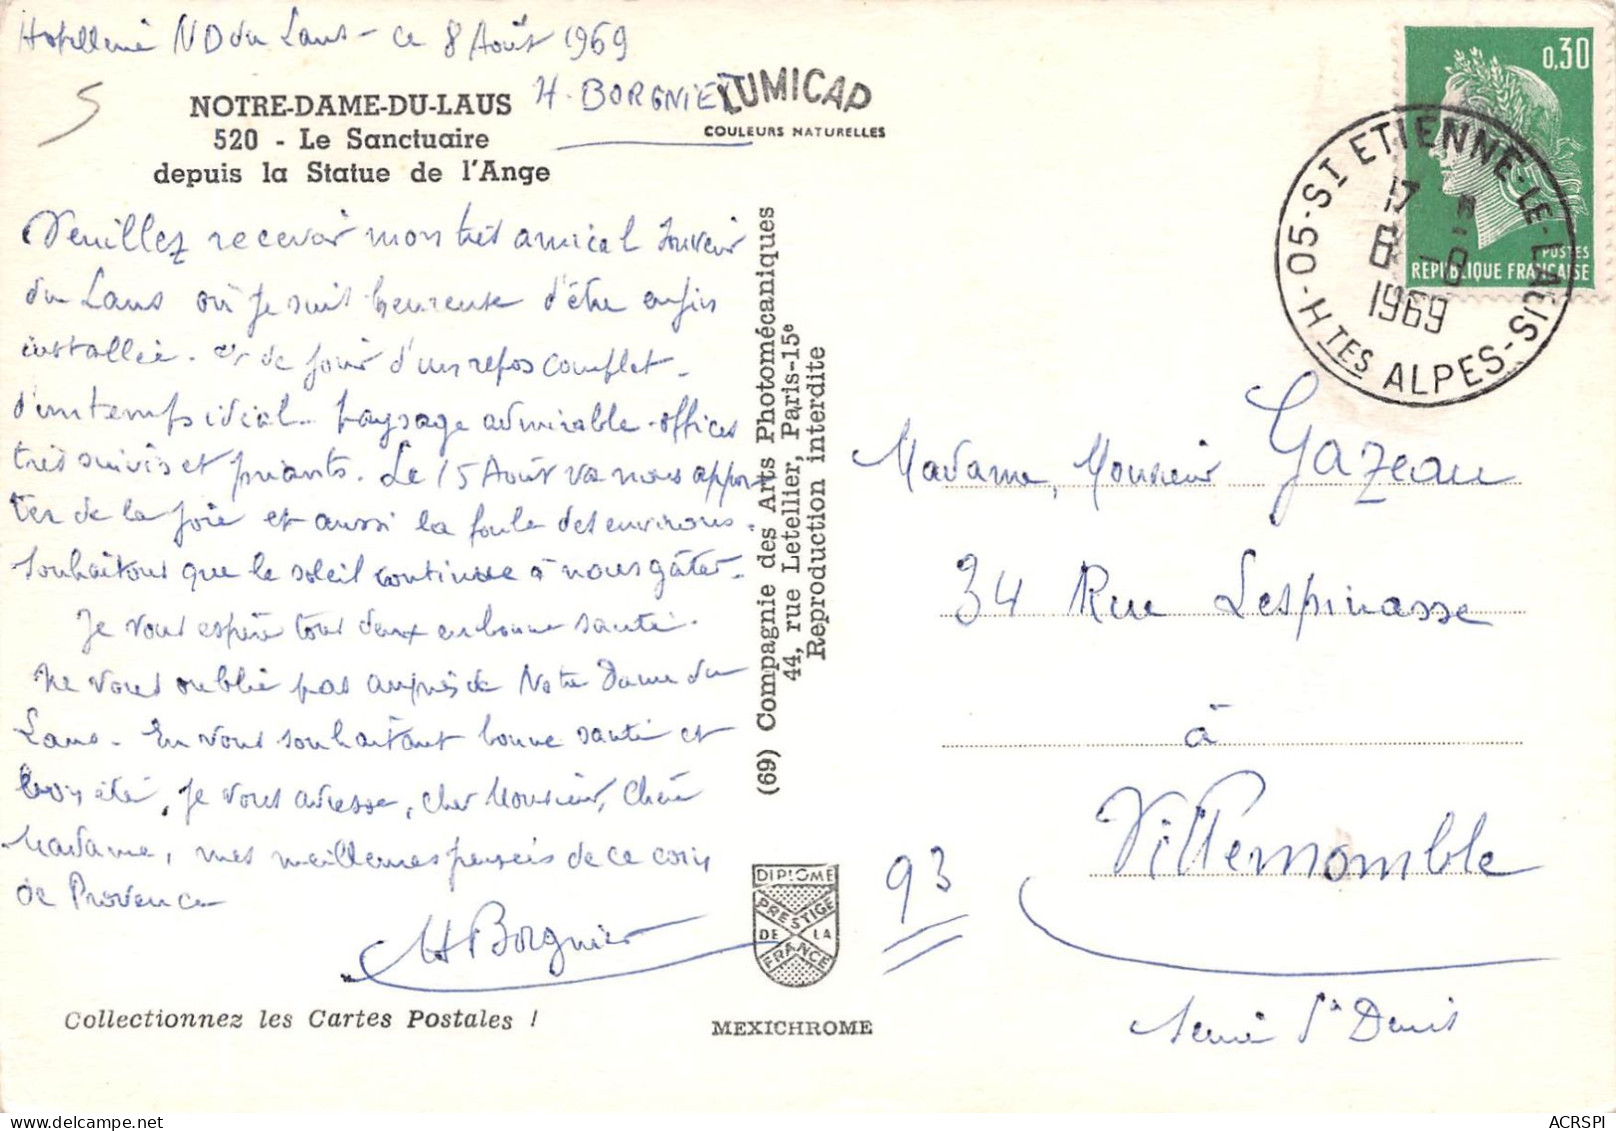 Hotellerie ND du Laus - ce 8 Août 1969
5
H. BORGNIET
LUMICAP
COULEURS NATURELLES
NOTRE-DAME-DU-LAUS
520 - Le Sanctuaire
depuis la Statue de l'Ange
Veuillez recevoir mon très amical souvenir
du Laus où je suis heureuse d'être enfin
installée. et de jouir d'un repos complet -
d'un temps idéal. paysage admirable - offices
très suivis et priants. Le 15 Août va nous appor
ter de la joie et aussi la foule des environs.
Souhaitons que le soleil continue à nous gâter.
Je vous espère tous deux en bonne santé.
ne vous oublie pas auprès de Notre Dame du
Laus. En vous souhaitant bonne santé et
bon été, je vous adresse, cher Monsieur, Chère
Madame, mes meilleures pensées de ce coin
de Provence
H Borgniet
Collectionnez les Cartes Postales !
(69) Compagnie des Arts Photomécaniques
44, rue Letellier, Paris-15e
Reproduction interdite
DIPLOME
PRESTIGE
DE LA
FRANCE
MEXICHROME
0,30
POSTES
REPUBLIQUE FRANÇAISE
05-ST ETIENNE-LE-LAUS-HTES ALPES
17 H
8 -8
1969
Madame, Monsieur Gazeau
34 Rue Lespinasse
à
Villemomble
93
Seine St Denis
ACRSPI